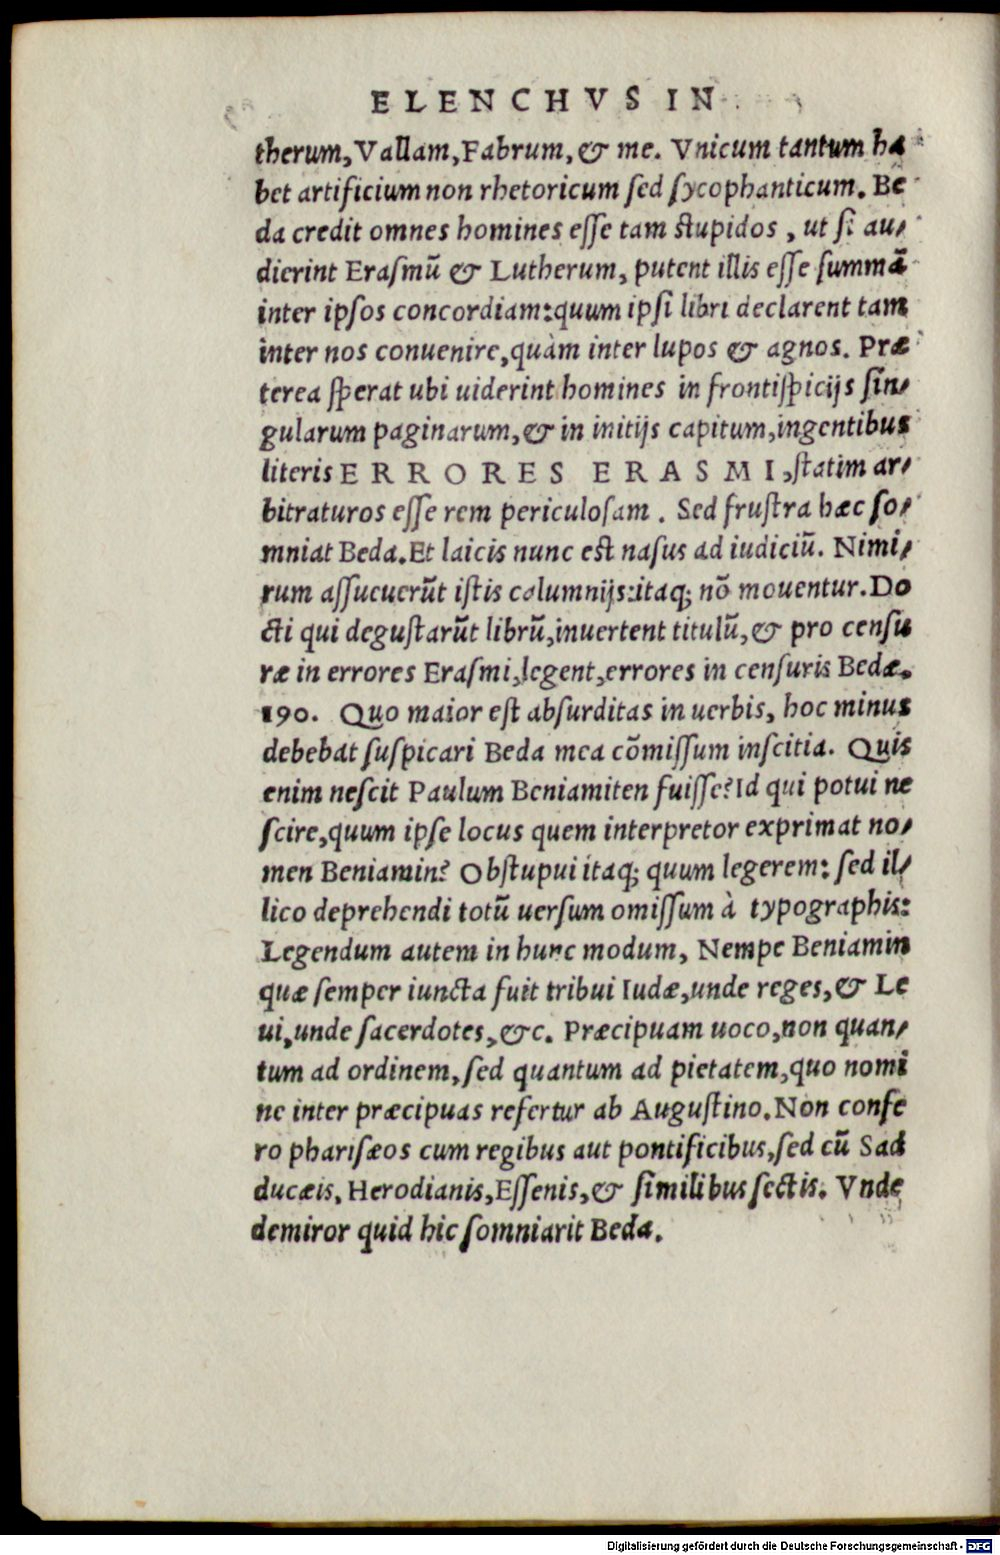 ELENCHVS IN
therum, Vallam, Fabrum, & me. Vnicum tantum ha
bet artificium non rhetoricum sed sycophanticum. Be
da credit omnes homines esse tam stupidos, ut si au-
dierint Erasmū & Lutherum, putent illis esse summā
inter ipsos concordiam: quum ipsi libri declarent tam
inter nos conuenire, quàm inter lupos & agnos. Præ
terea sperat ubi uiderint homines in frontispicijs sin-
gularum paginarum, & in initijs capitum, ingentibus
literis ERRORES ERASMI, statim ar-
bitraturos esse rem periculosam. Sed frustra hæc so-
mniat Beda. Et laicis nunc est nasus ad iudiciū. Nimi-
rum assueuerūt istis calumnijs: itaq; nō mouentur. Do
cti qui degustarūt librū, inuertent titulū, & pro censu
ræ in errores Erasmi, legent, errores in censuris Bedæ.
190. Quo maior est absurditas in uerbis, hoc minus
debebat suspicari Beda mea cōmissum inscitia. Quis
enim nescit Paulum Beniamiten fuisse? Id qui potui ne
scire, quum ipse locus quem interpretor exprimat no-
men Beniamin? Obstupui itaq; quum legerem: sed il-
lico deprehendi totū uersum omissum à typographis:
Legendum autem in hunc modum, Nempe Beniamin
quæ semper iuncta fuit tribui Iudæ, unde reges, & Le
ui, unde sacerdotes, &c. Præcipuam uoco, non quan-
tum ad ordinem, sed quantum ad pietatem, quo nomi
ne inter præcipuas refertur ab Augustino. Non confe
ro pharisæos cum regibus aut pontificibus, sed cū Sad
ducæis, Herodianis, Essenis, & similibus sectis. Vnde
demiror quid hic somniarit Beda.
Digitalisierung gefördert durch die Deutsche Forschungsgemeinschaft - DFG